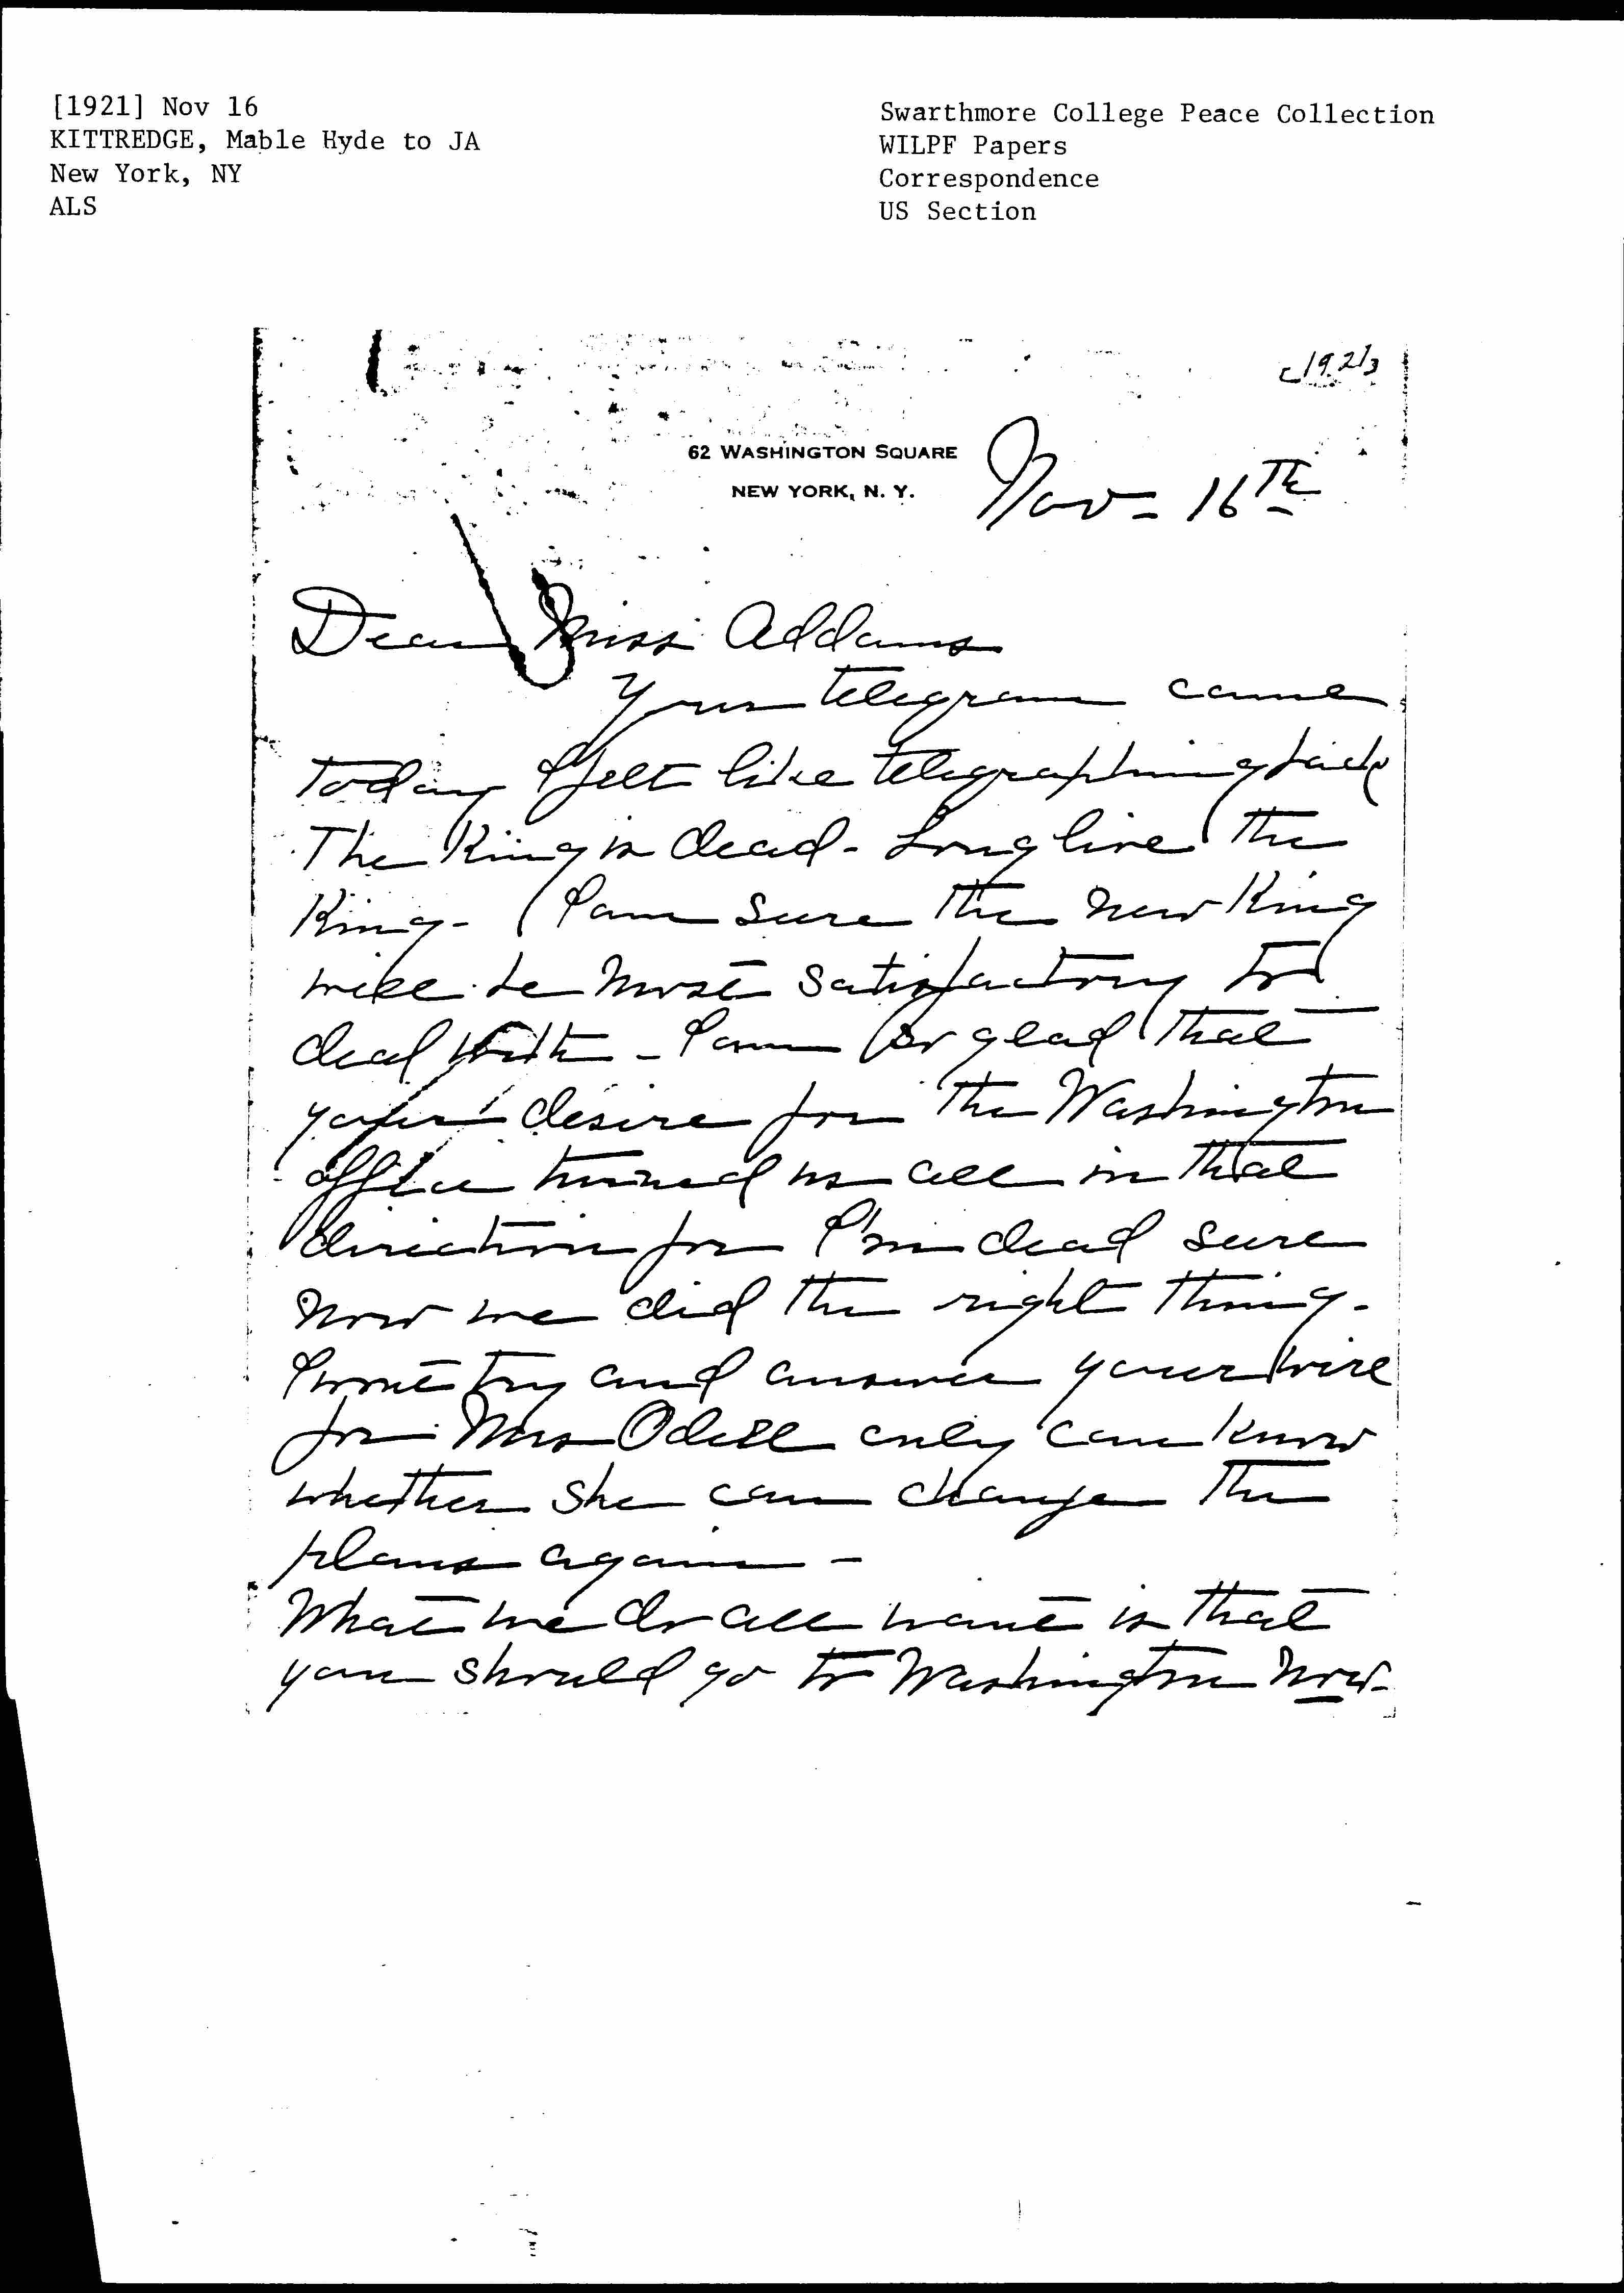 [1921] Nov 16
KITTREDGE, Mable Hyde to JA
New York, NY
ALS
Swarthmore College Peace Collection
WILPF Papers
Correspondence
US Section
[1921]
62 WASHINGTON SQUARE
NEW YORK, N. Y.
Nov- 16th
Dear Miss Addams
Your telegram came
today I felt like telegraphing back
The King is dead - Long live the
King - I am sure the new King
will be most satisfactory to
deal with - I am so glad that
your desire for the Washington
office turned us all in that
direction for I'm dead sure
now we did the right thing -
I wont try and answer your wire
for Mrs Odell only can know
whether she can change the
plans again -
What we do all want is that
you should go to Washington now-